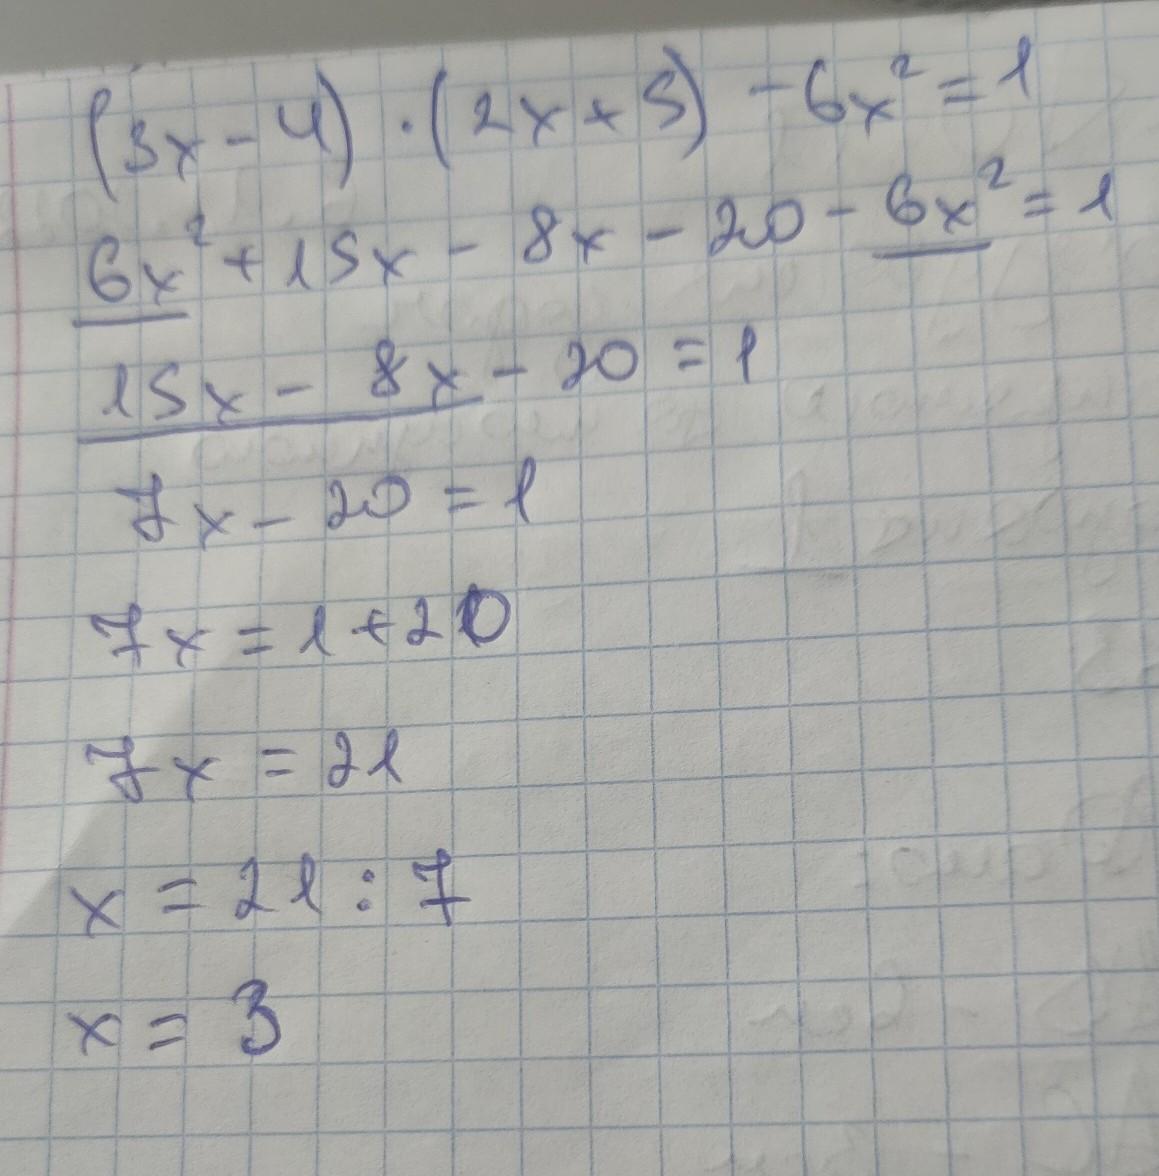 (3x - 4) · (2x + 5) - 6x² = 1
6x² + 15x - 8x - 20 - 6x² = 1
15x - 8x - 20 = 1
7x - 20 = 1
7x = 1 + 20
7x = 21
x = 21 : 7
x = 3